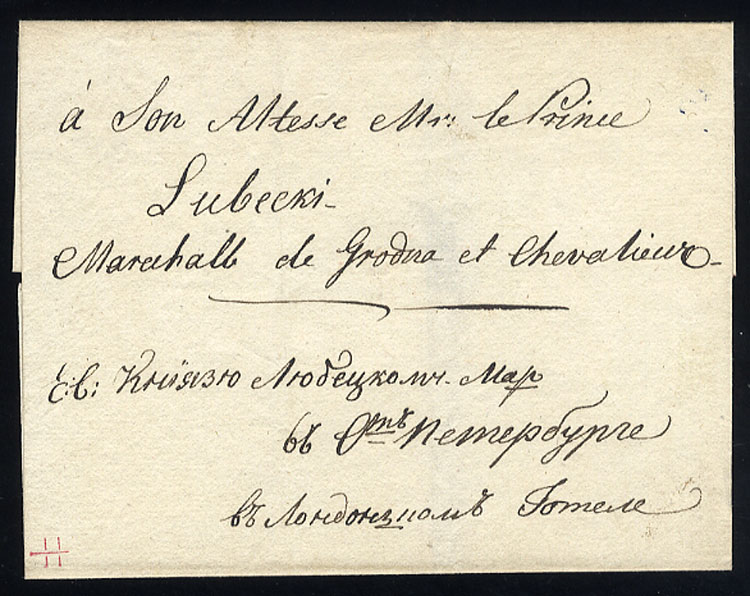 á Son Altesse Mr: le Prince
Lubecki-
Marchall de Grodna et Chevalieur-
Е: С: Князю Любецкому. Мар
въ Сптъ Петербурге
въ Лондонцкомъ Готеле